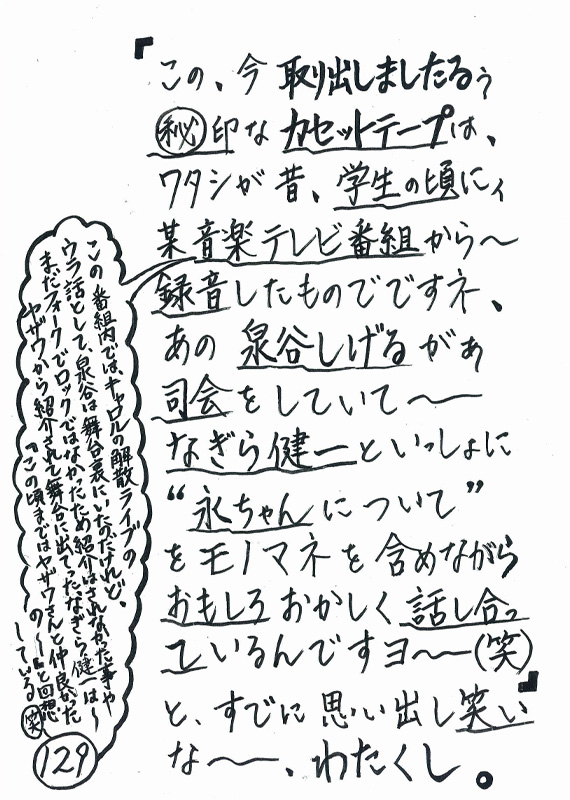 『この、今 取り出しましたるぅ
㊙印な カセットテープは、
ワタシが 昔、学生の頃にィ
某音楽テレビ番組から〜
録音したものでですネ、
あの 泉谷しげるがぁ
司会をしていて〜
なぎら健一といっしょに
“永ちゃんについて”
をモノマネを含めながら
おもしろおかしく話し合っ
ているんですヨ〜(笑)』
と、すでに思い出し笑い
な〜、わたくし。
この番組内では、キャロルの解散ライブの
ウラ話として、泉谷は舞台裏にいたのだけれど、
まだフォークでロックではなかったため紹介はされなかった事や
ヤザワから紹介されて舞台に出てったなぎら健一は〜
『この頃まではヤザワさんと仲良かった
の〜』と回想
している(笑)
129